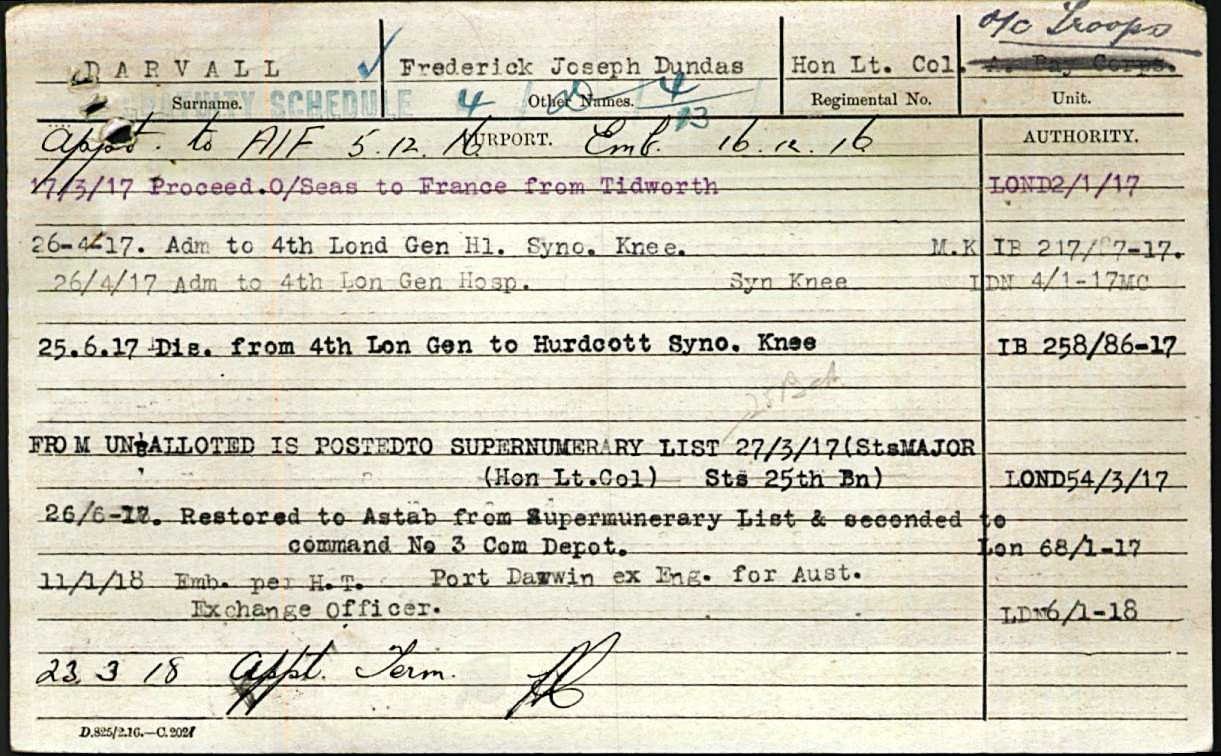 O/C Troops
DARVALL Frederick Joseph Dundas Hon Lt. Col. A. Pay Corps.
GRATUITY SCHEDULE 4 4
13
Surname. Other Names. Regimental No. Unit.
Appt. to AIF 5.12.16 PURPORT. Emb. 16.12.16 AUTHORITY.
17/3/17 Proceed.O/Seas to France from Tidworth LOND2/1/17
26-4-17. Adm to 4th Lond Gen Hl. Syno. Knee. M.K IB 217/ 7-17.
26/4/17 Adm to 4th Lon Gen Hosp. Syn Knee LDN 4/1-17MC
25.6.17 Dis. from 4th Lon Gen to Hurdcott Syno. Knee IB 258/86-17
25 Bat.
FROM UNALLOTED IS POSTEDTO SUPERNUMERARY LIST 27/3/17(StsMAJOR
(Hon Lt.Col) Sts 25th Bn) LOND54/3/17
26/6-17. Restored to Astab from Supermunerary List & seconded to
command No 3 Com Depot. Lon 68/1-17
11/1/18 Emb. per H.T. Port Dawwin ex Eng. for Aust.
Exchange Officer. LDN6/1-18
23.3 18 Appt. Term.
D.825/2.16.—C.2027